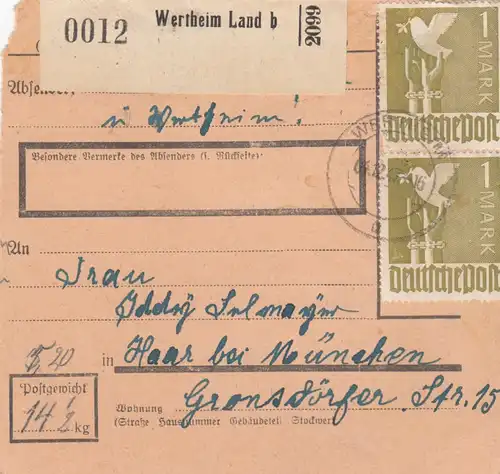 0012
Wertheim Land b
2099
1
MARK
Deutsche Post
Absender:
ü Wertheim!
Besondere Vermerke des Absenders (s. Rückseite)
WERTHEIM
b
1
MARK
Deutsche Post
An
Frau
Iddy Selmayer
in Haar bei München
Gronsdorfer Str. 15
20
Postgewicht
14½ kg
Wohnung
(Straße Hausnummer Gebäudeteil Stockwerk)